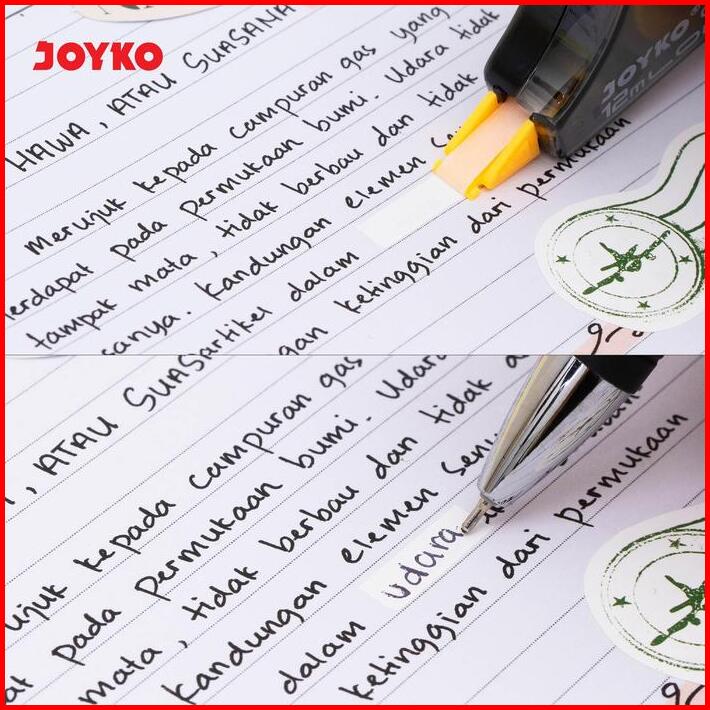 JOYKO
HAWA, ATAU SUASANA
merujuk kepada campuran gas yang
terdapat pada permukaan bumi. Udara tidak
tampak mata, tidak berbau dan tidak
sanya. Kandungan elemen
artikel dalam
gan ketinggian dari permukaan
JOYKO
12m
, ATAU SUAS
ujuk kepada campuran gas
at pada permukaan bumi. Udara
mata, tidak berbau dan tidak
kandungan elemen
dalam udara
ketinggian dari permukaan